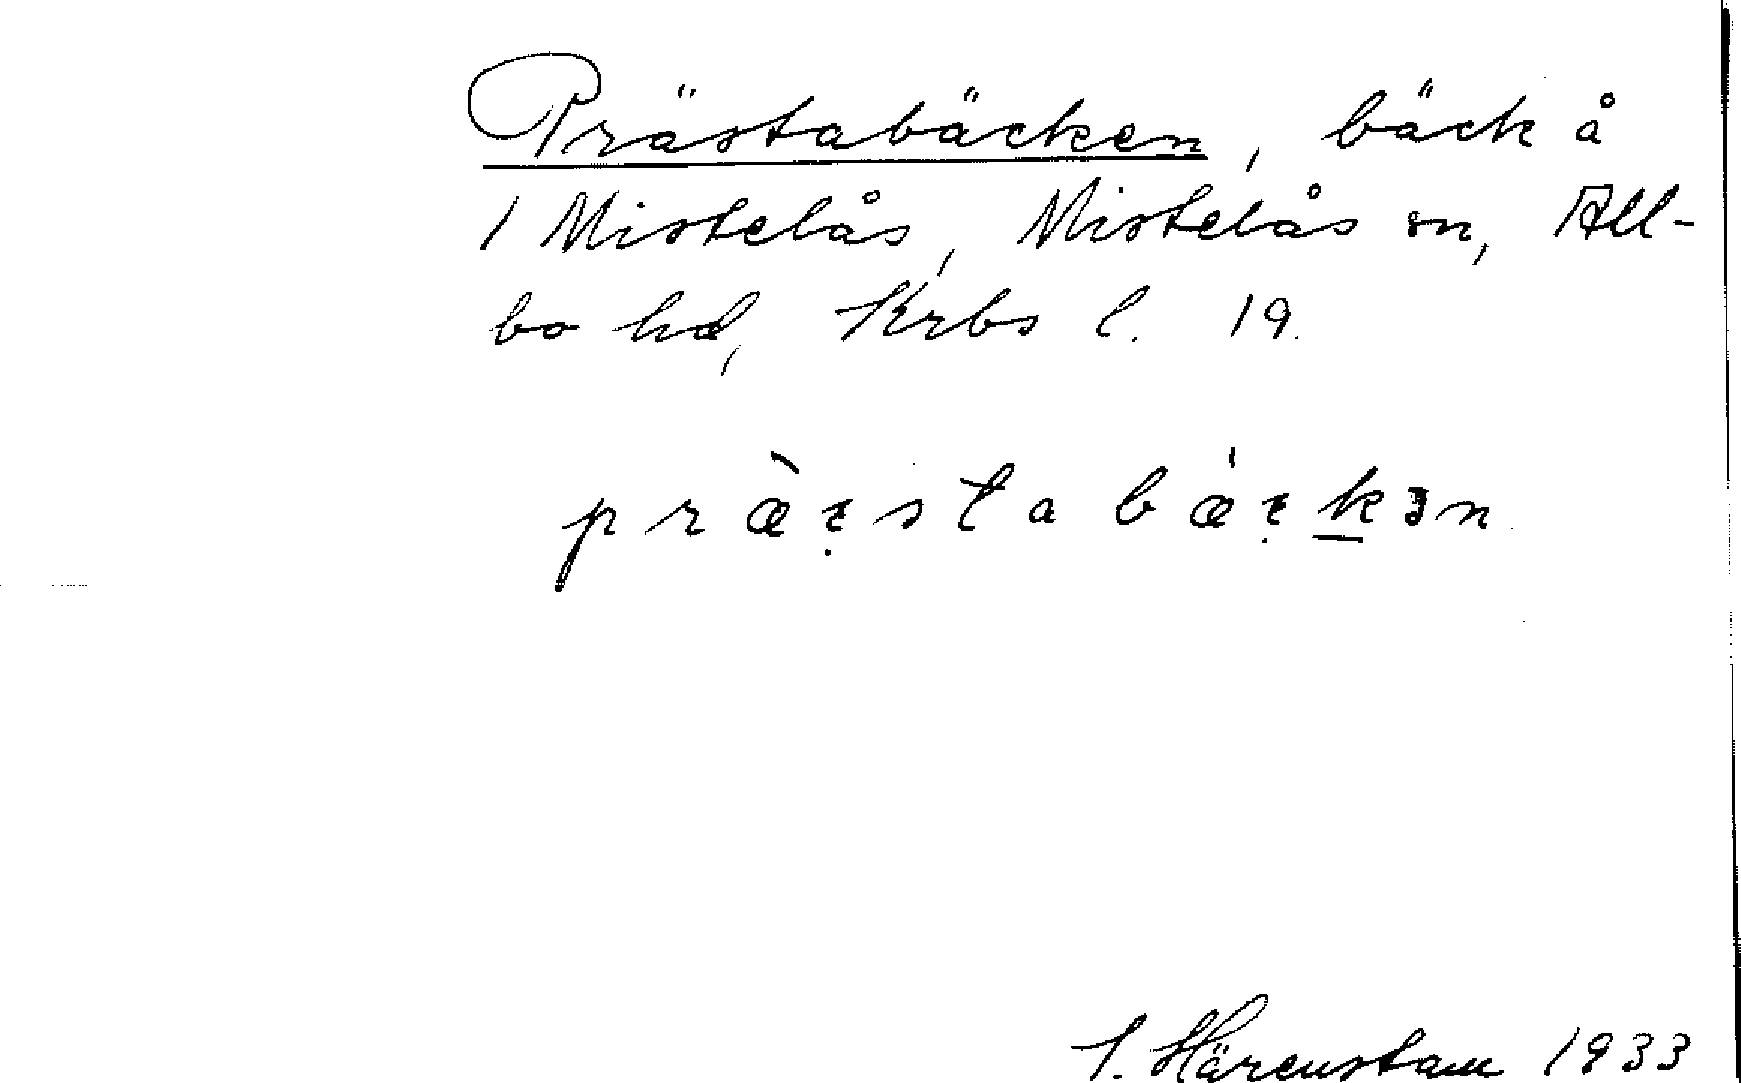 Prästabäcken, bäck å
1 Mistelås, Mistelås sn, All-
bo hd, Krbs l. 19.
præ̀ɛ̣stabǽɛ̣kən
1933